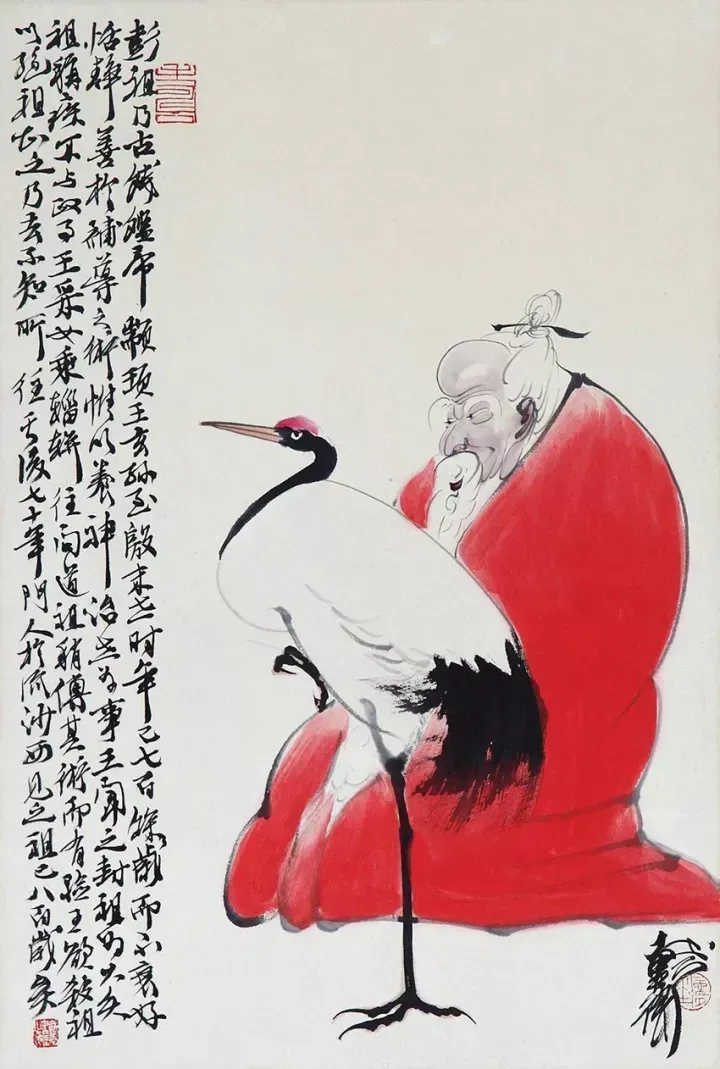 彭祖乃古籛鏗帝顓頊王玄孙至殷末世时年已七百餘歲而不衰好
恬静善於補導之術惟以養神治生為事王聞之封祖为大夫
祖稱疾不与政事王采女乘輜軿往问道祖稍傳其術而有驗王欲殺祖
以絕祖知之乃去不知所往其後七十年門人於流沙西見之祖已八百歲矣
戴衛